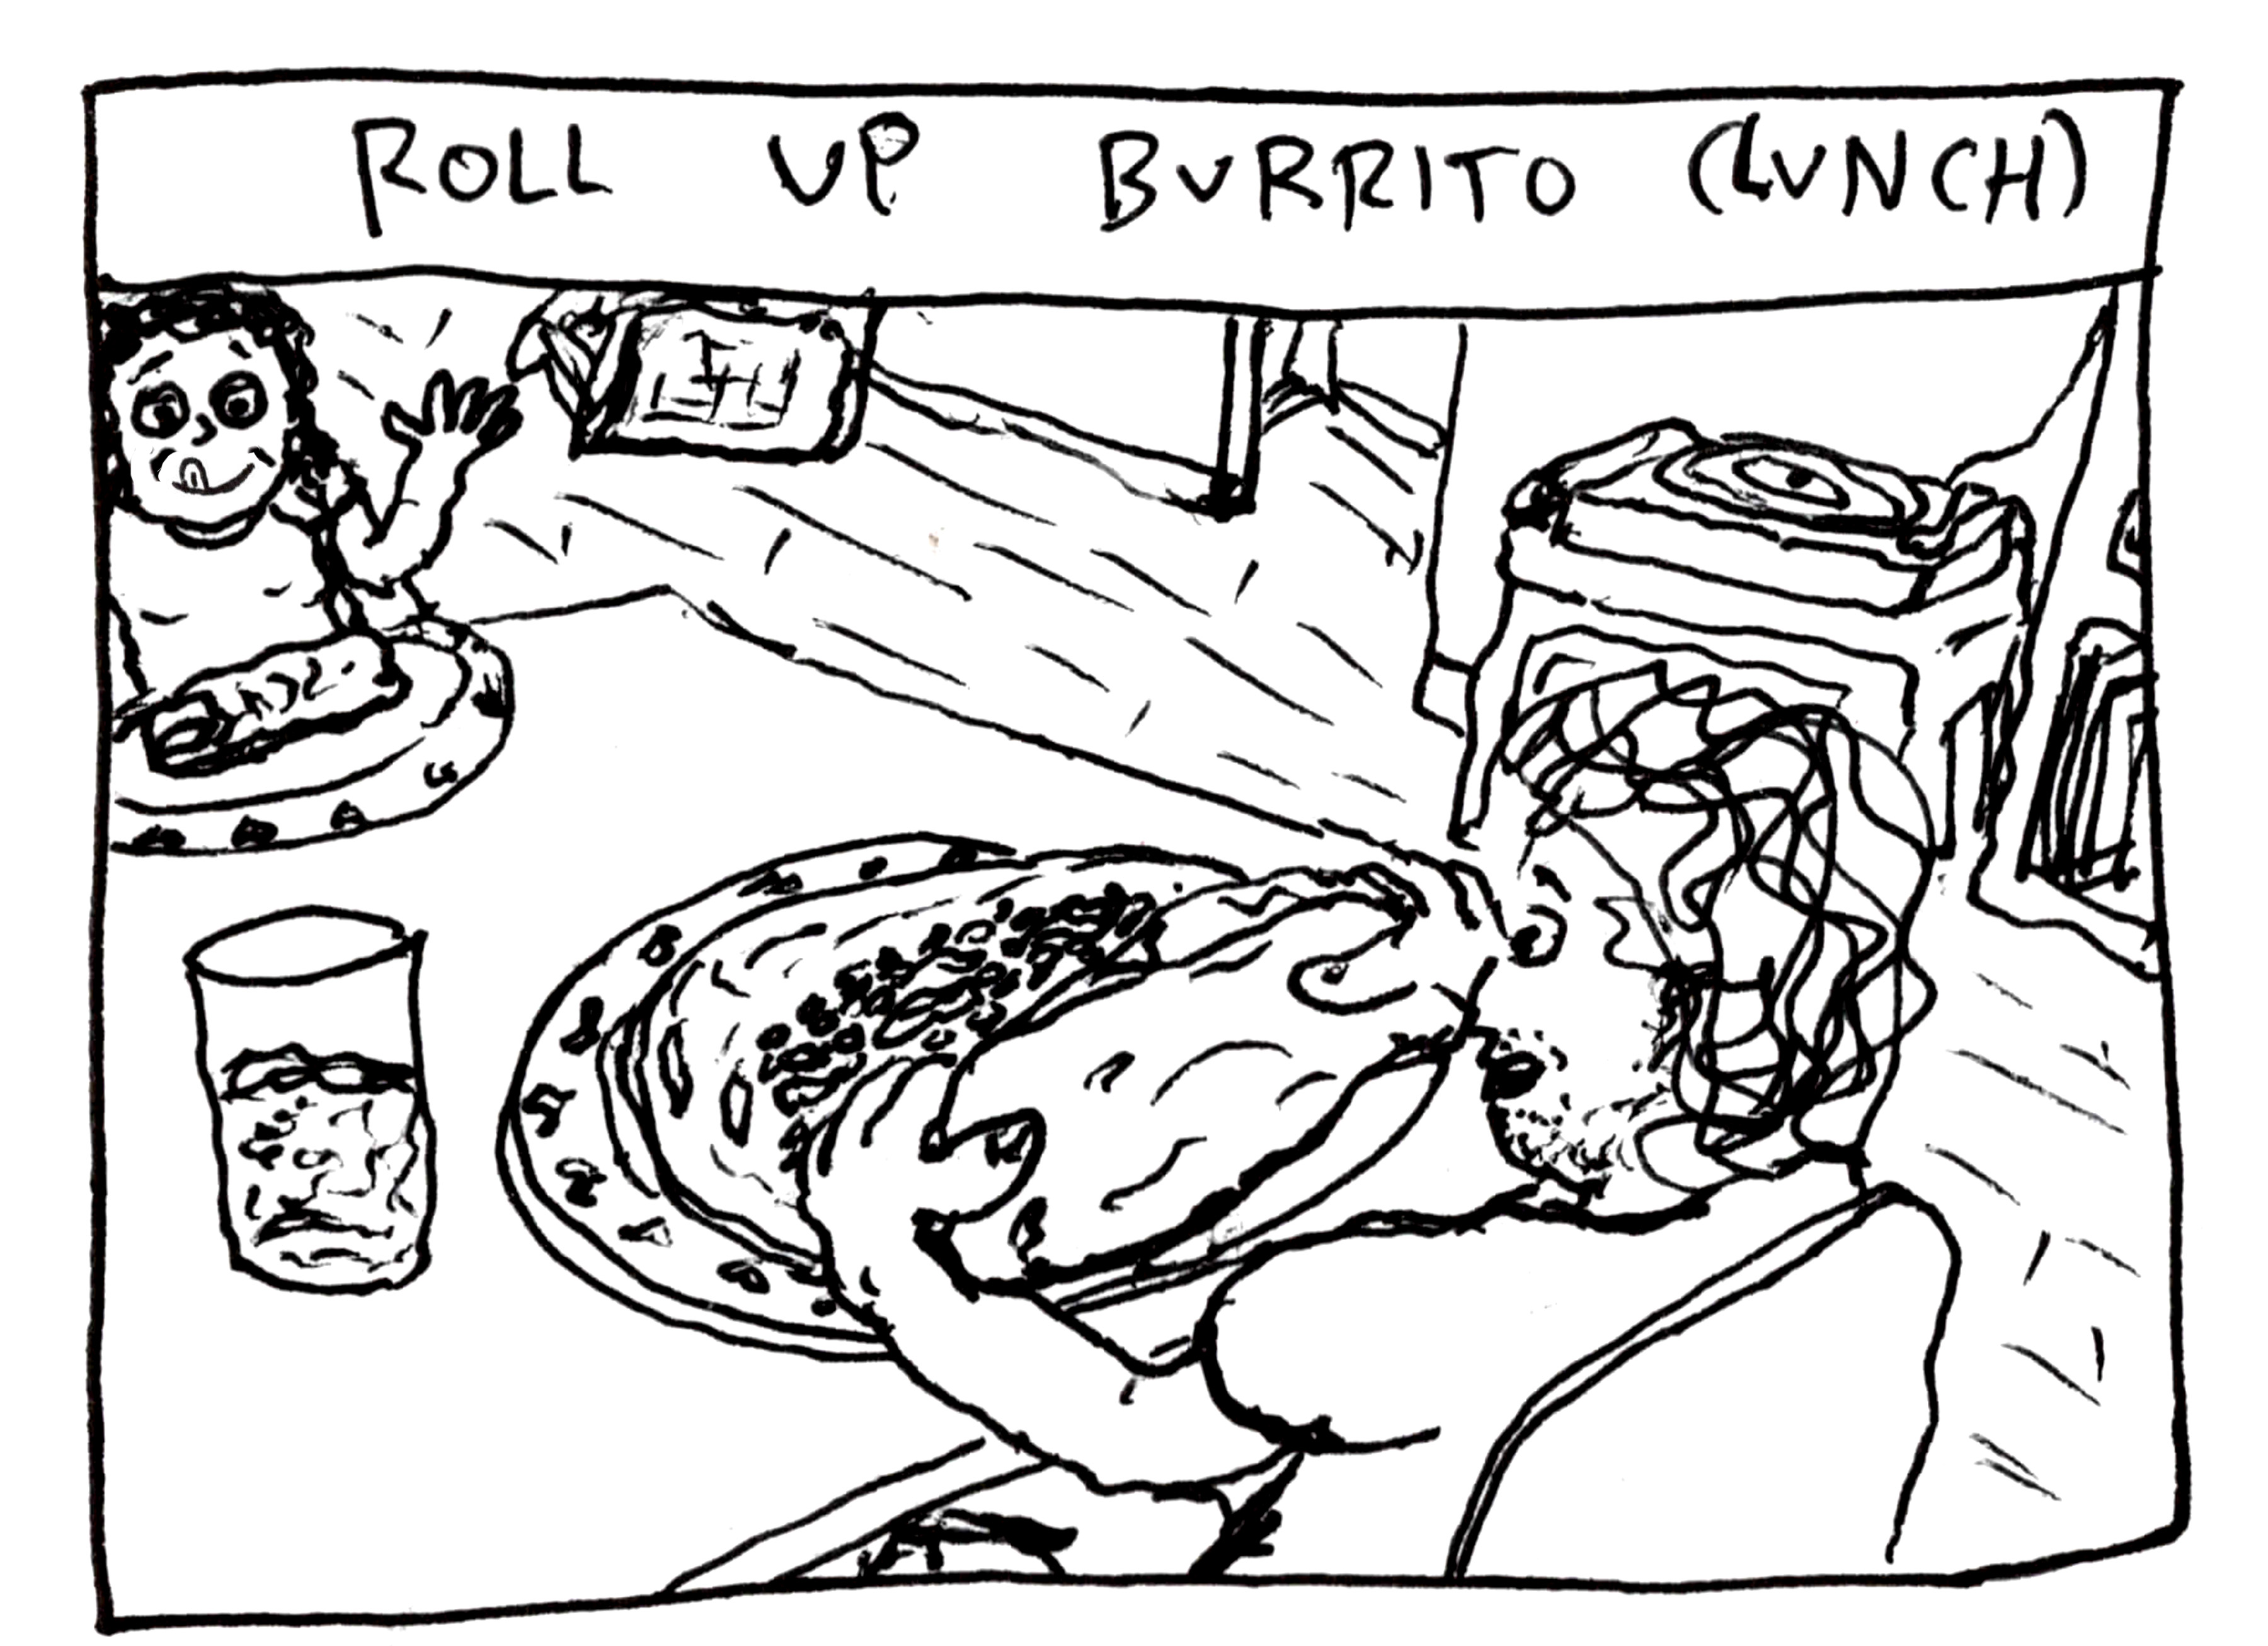 ROLL UP BURRITO (LUNCH)